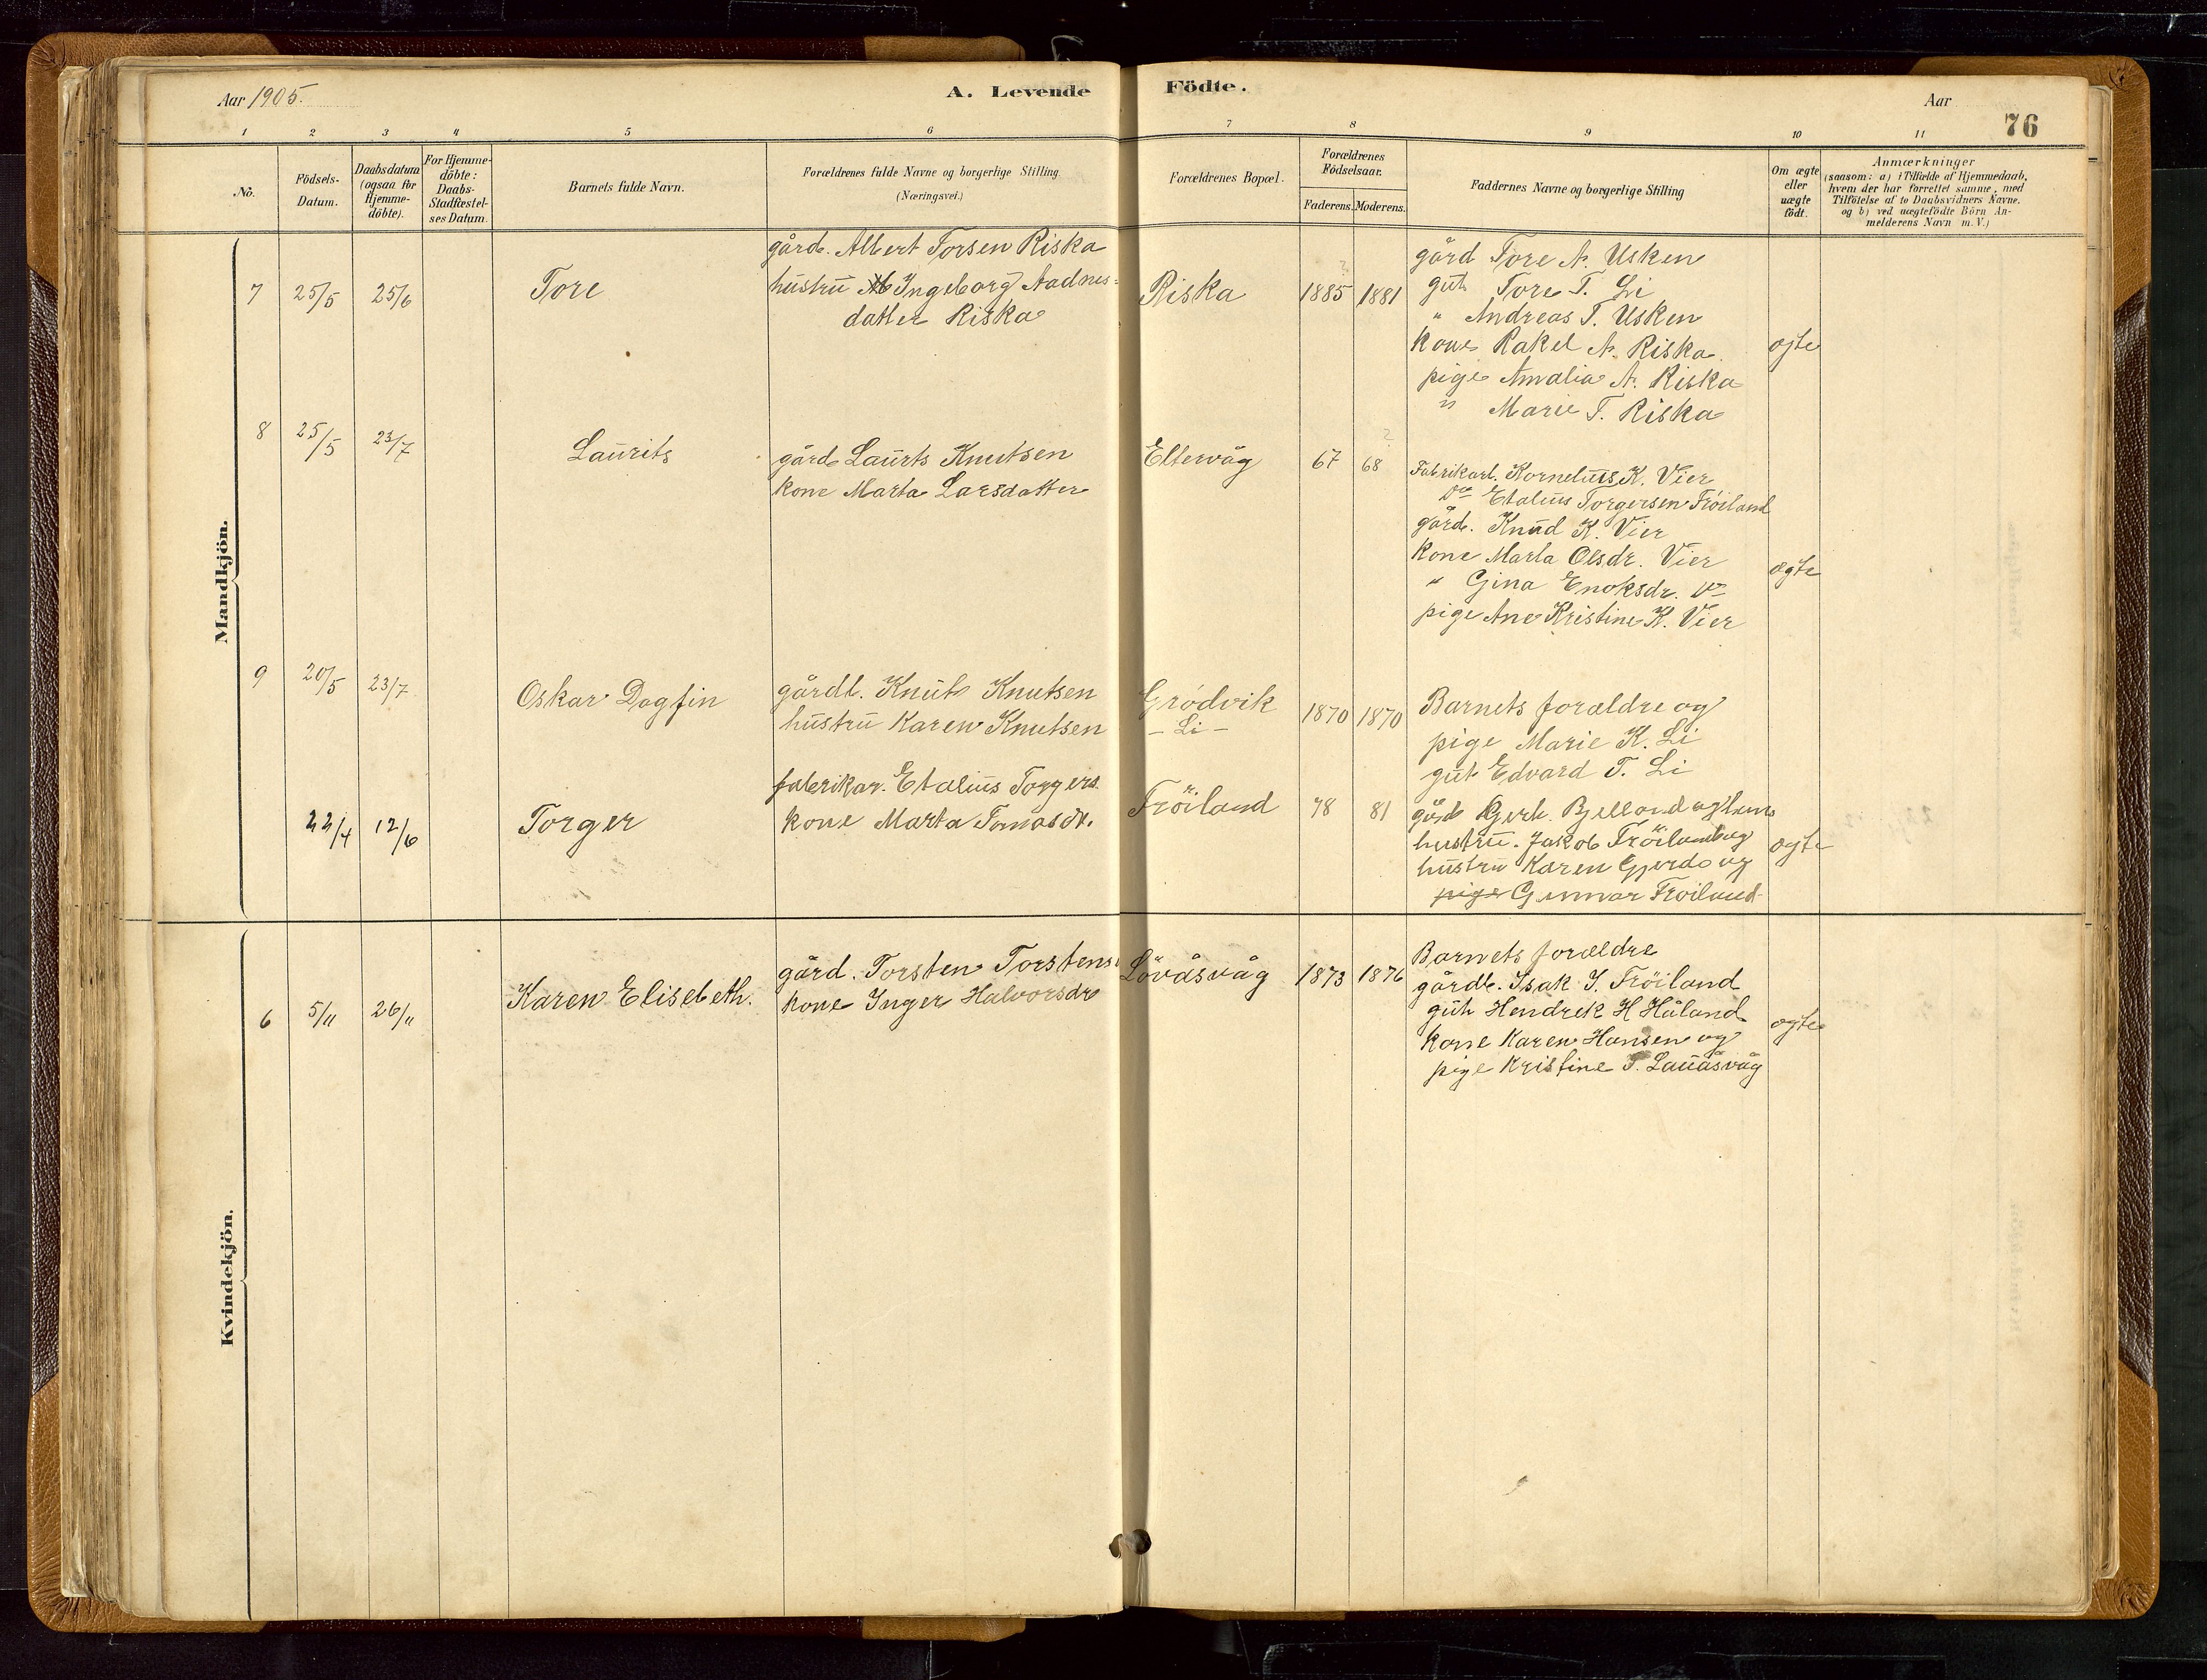 Aar 1905.
A. Levende Födte.
Aar
76
1 2 3 4 5 6 7 8 9 10 11
No.
Födsels-
Datum.
Daabsdatum
(ogsaa for
Hjemme-
döbte).
For Hjemme-
döbte:
Daabs-
Stadfæstel-
ses Datum.
Barnets fulde Navn.
Forældrenes fulde Navne og borgerlige Stilling
(Næringsvei.)
Forældrenes Bopæl.
Forældrenes
Födselsaar.
Faderens. Moderens.
Faddernes Navne og borgerlige Stilling
Om ægte
eller
uægte
födt.
Anmærkninger
(saasom: a) i Tilfælde af Hjemmedaab,
hvem der har forrettet samme, med
Tilföielse af to Daabsvidners Navne.
og b) ved uægtefödte Börn An-
melderens Navn m. V.)
Mandkjön.
7 25/5 25/6 Tore
gård. Albert Torsen Riska
hustru Ingeborg Aadnes-
datter Riska
Riska 1885 1881
gård Tore A. Usken
gut Tore T. Li
" Andreas T. Usken
kone Rakel A. Riska
pige Amalia A. Riska
" Marie T. Riska
ægte
8 25/5 23/7 Laurits
gård Laurts Knutsen
kone Marta Larsdatter
Eltervåg 67 68
Fabrikarb. Kornelius K. Vier
Do Etalius Torgersen Fröiland
gård. Knud K. Vier
kone Marta Olsdr. Vier
" Gina Enoksdr. Do
pige Ane Kristine K. Vier
ægte
9 20/5 23/7 Oskar Dagfin
gårdb. Knut Knutsen
hustru Karen Knutsen
Grödvik
- Li -
1870 1870
Barnets forældre og
pige Marie K. Li
gut Edvard T. Li
22/4 12/6 Torger
fabrikar. Etalius Torgers.
kone Marta Tomasdr.
Fröiland 78 81
gård Gert. Bjelland og hans
hustru. Jakob Fröiland og
hustru Karen Gjerdo og
pige Gunnar Fröiland
ægte
Kvindekjön.
6 5/11 26/11 Karen Elisebeth.
gård. Torsten Torstens
kone Inger Halvorsdr
Lövåsvåg 1873 1876
Barnets forældre
gårdb. Isak J. Fröiland
gut Hendrek H Håland
kone Karen Hansen og
pige Kristine T. Lauåsvåg
ægte